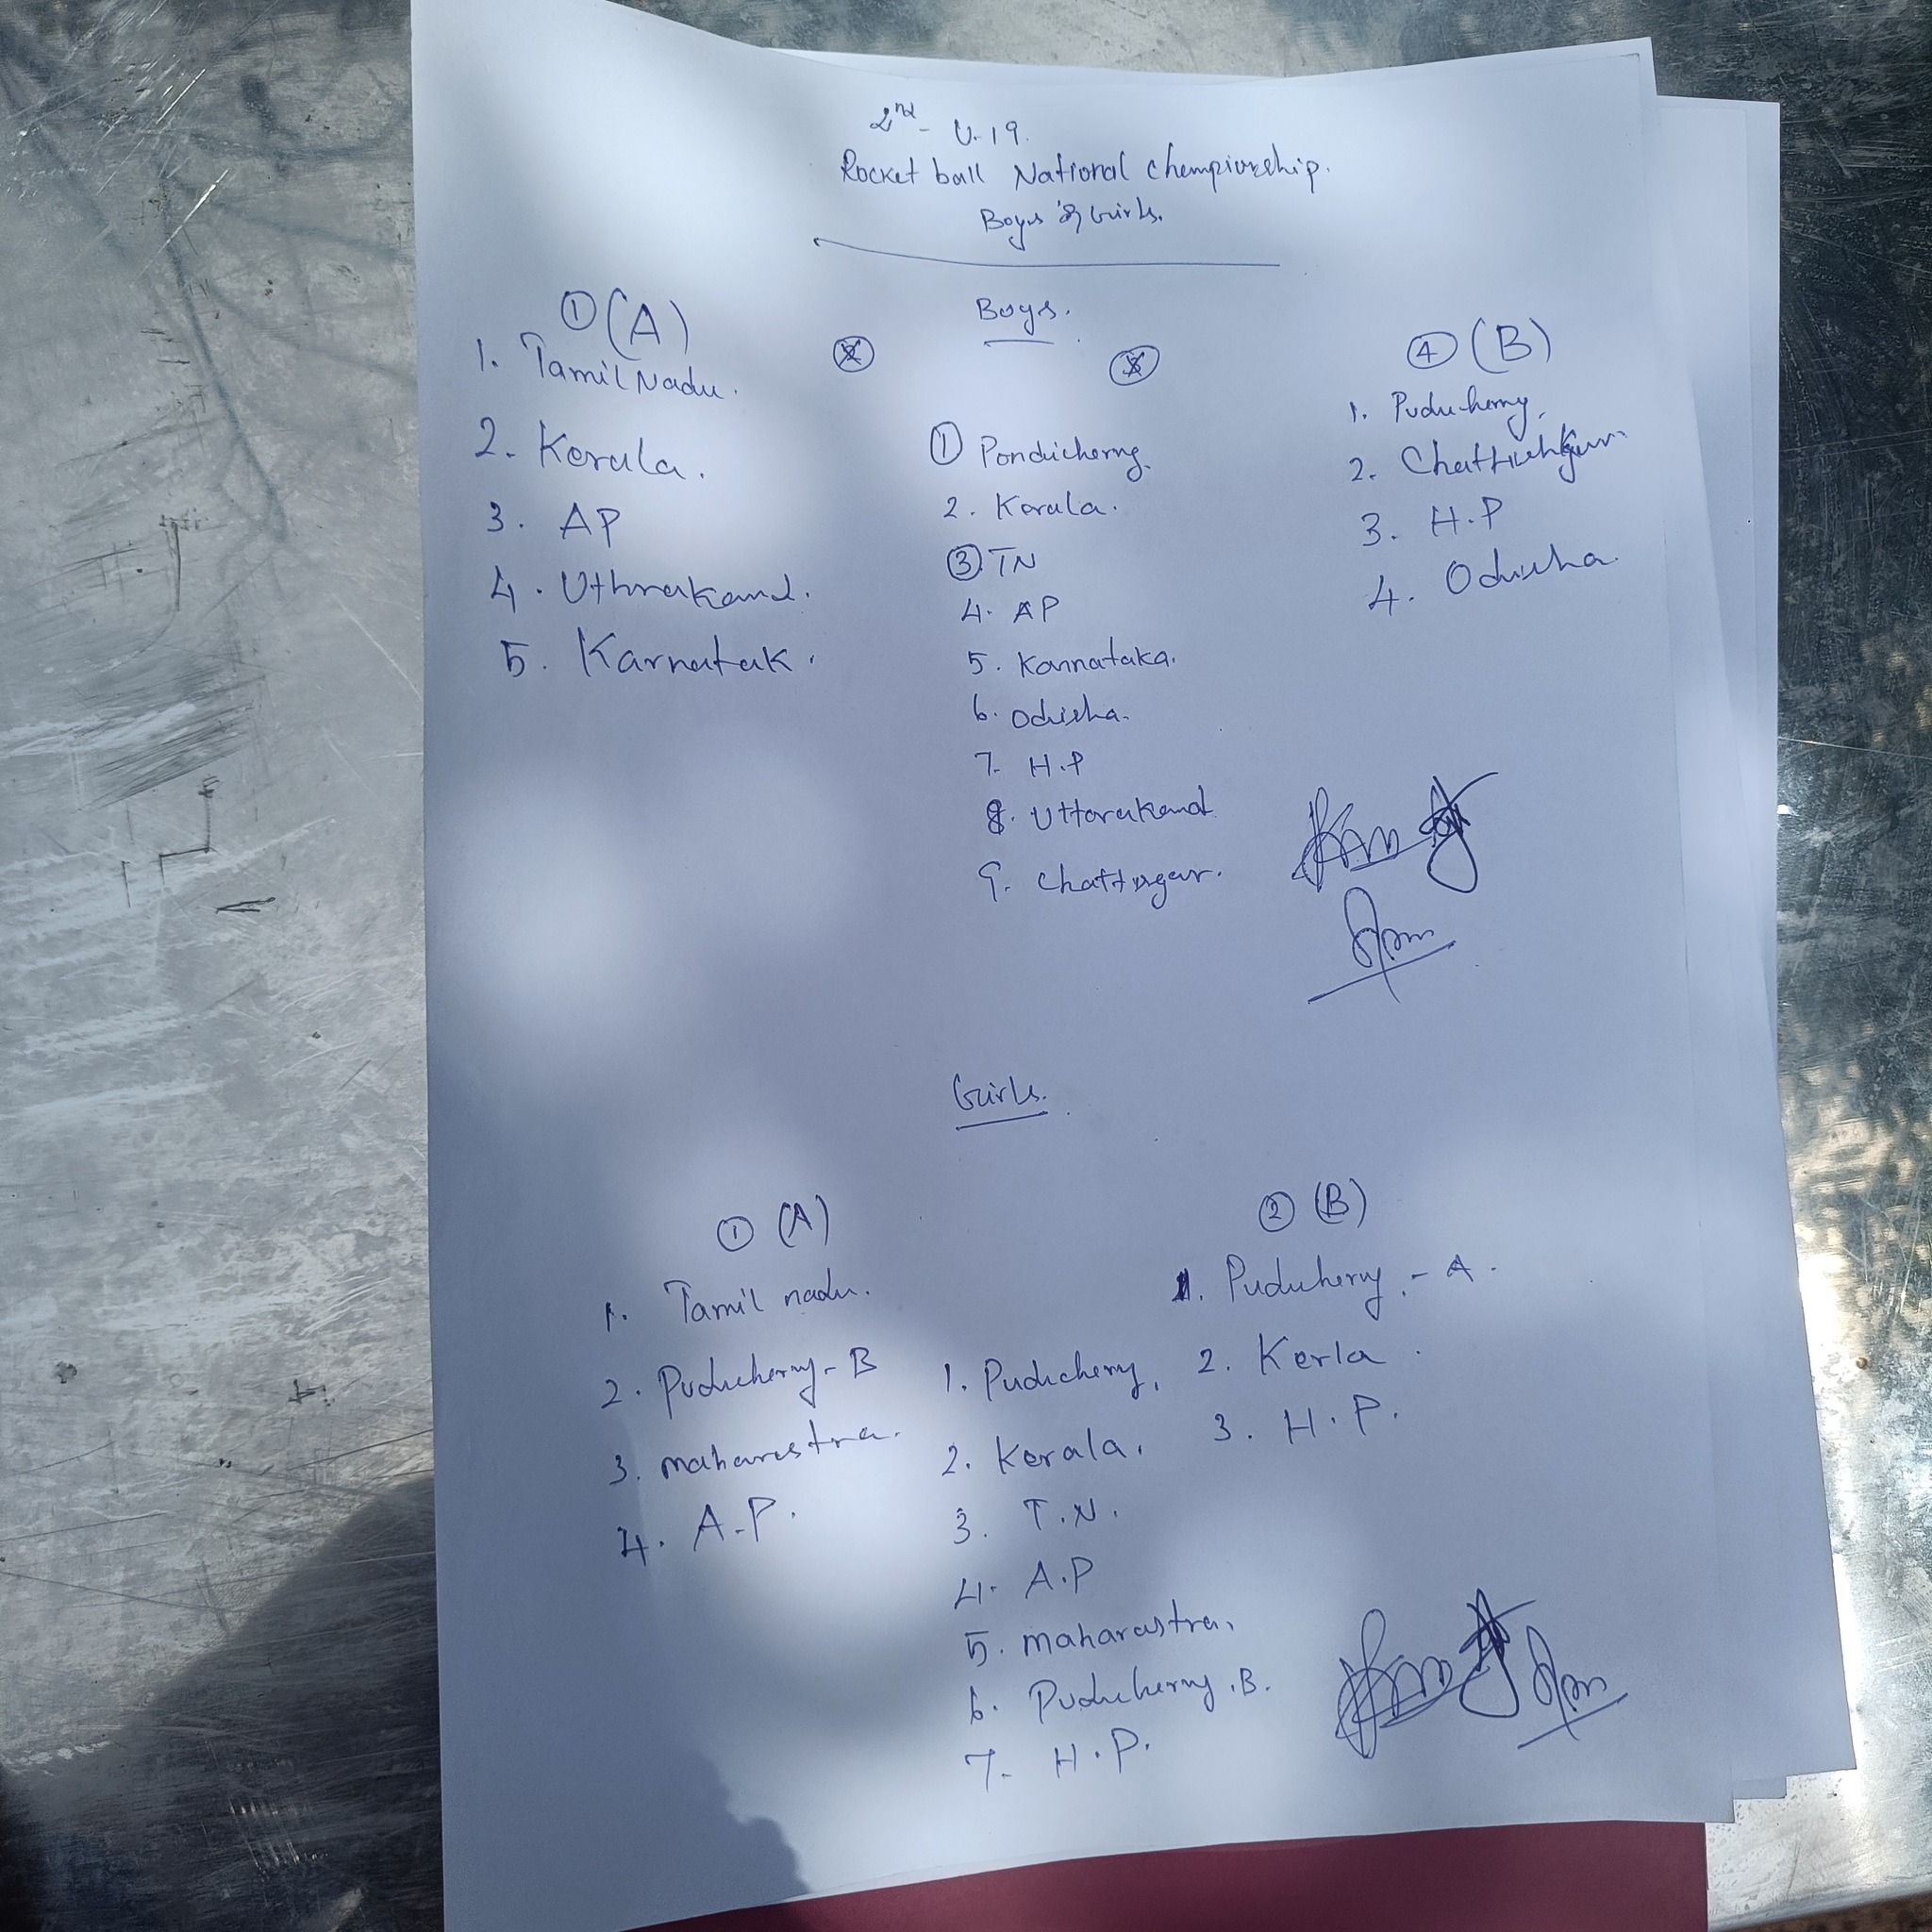 2nd - U.19.
Rocket ball National Championship.
Boys & Girls.
Boys.
① (A)
1. Tamil Nadu.
2. Kerala.
3. AP
4. Uthrakand.
5. Karnatak.
① Pondicherry.
2. Kerala.
③ TN
4. AP
5. Karnataka.
6. Odisha.
7. H.P
8. Uttarakand
9. Chattisgar.
④ (B)
1. Puducherry.
2. Chattishgar
3. H.P
4. Odisha.
Girls.
① (A)
1. Tamil nadu.
2. Puducherry - B
3. maharastra.
4. A.P.
1. Puducherry.
2. Kerala.
3. T.N.
4. A.P
5. maharastra.
6. Puducherry .B.
7. H.P.
② (B)
1. Puducherry. - A.
2. Kerla.
3. H.P.